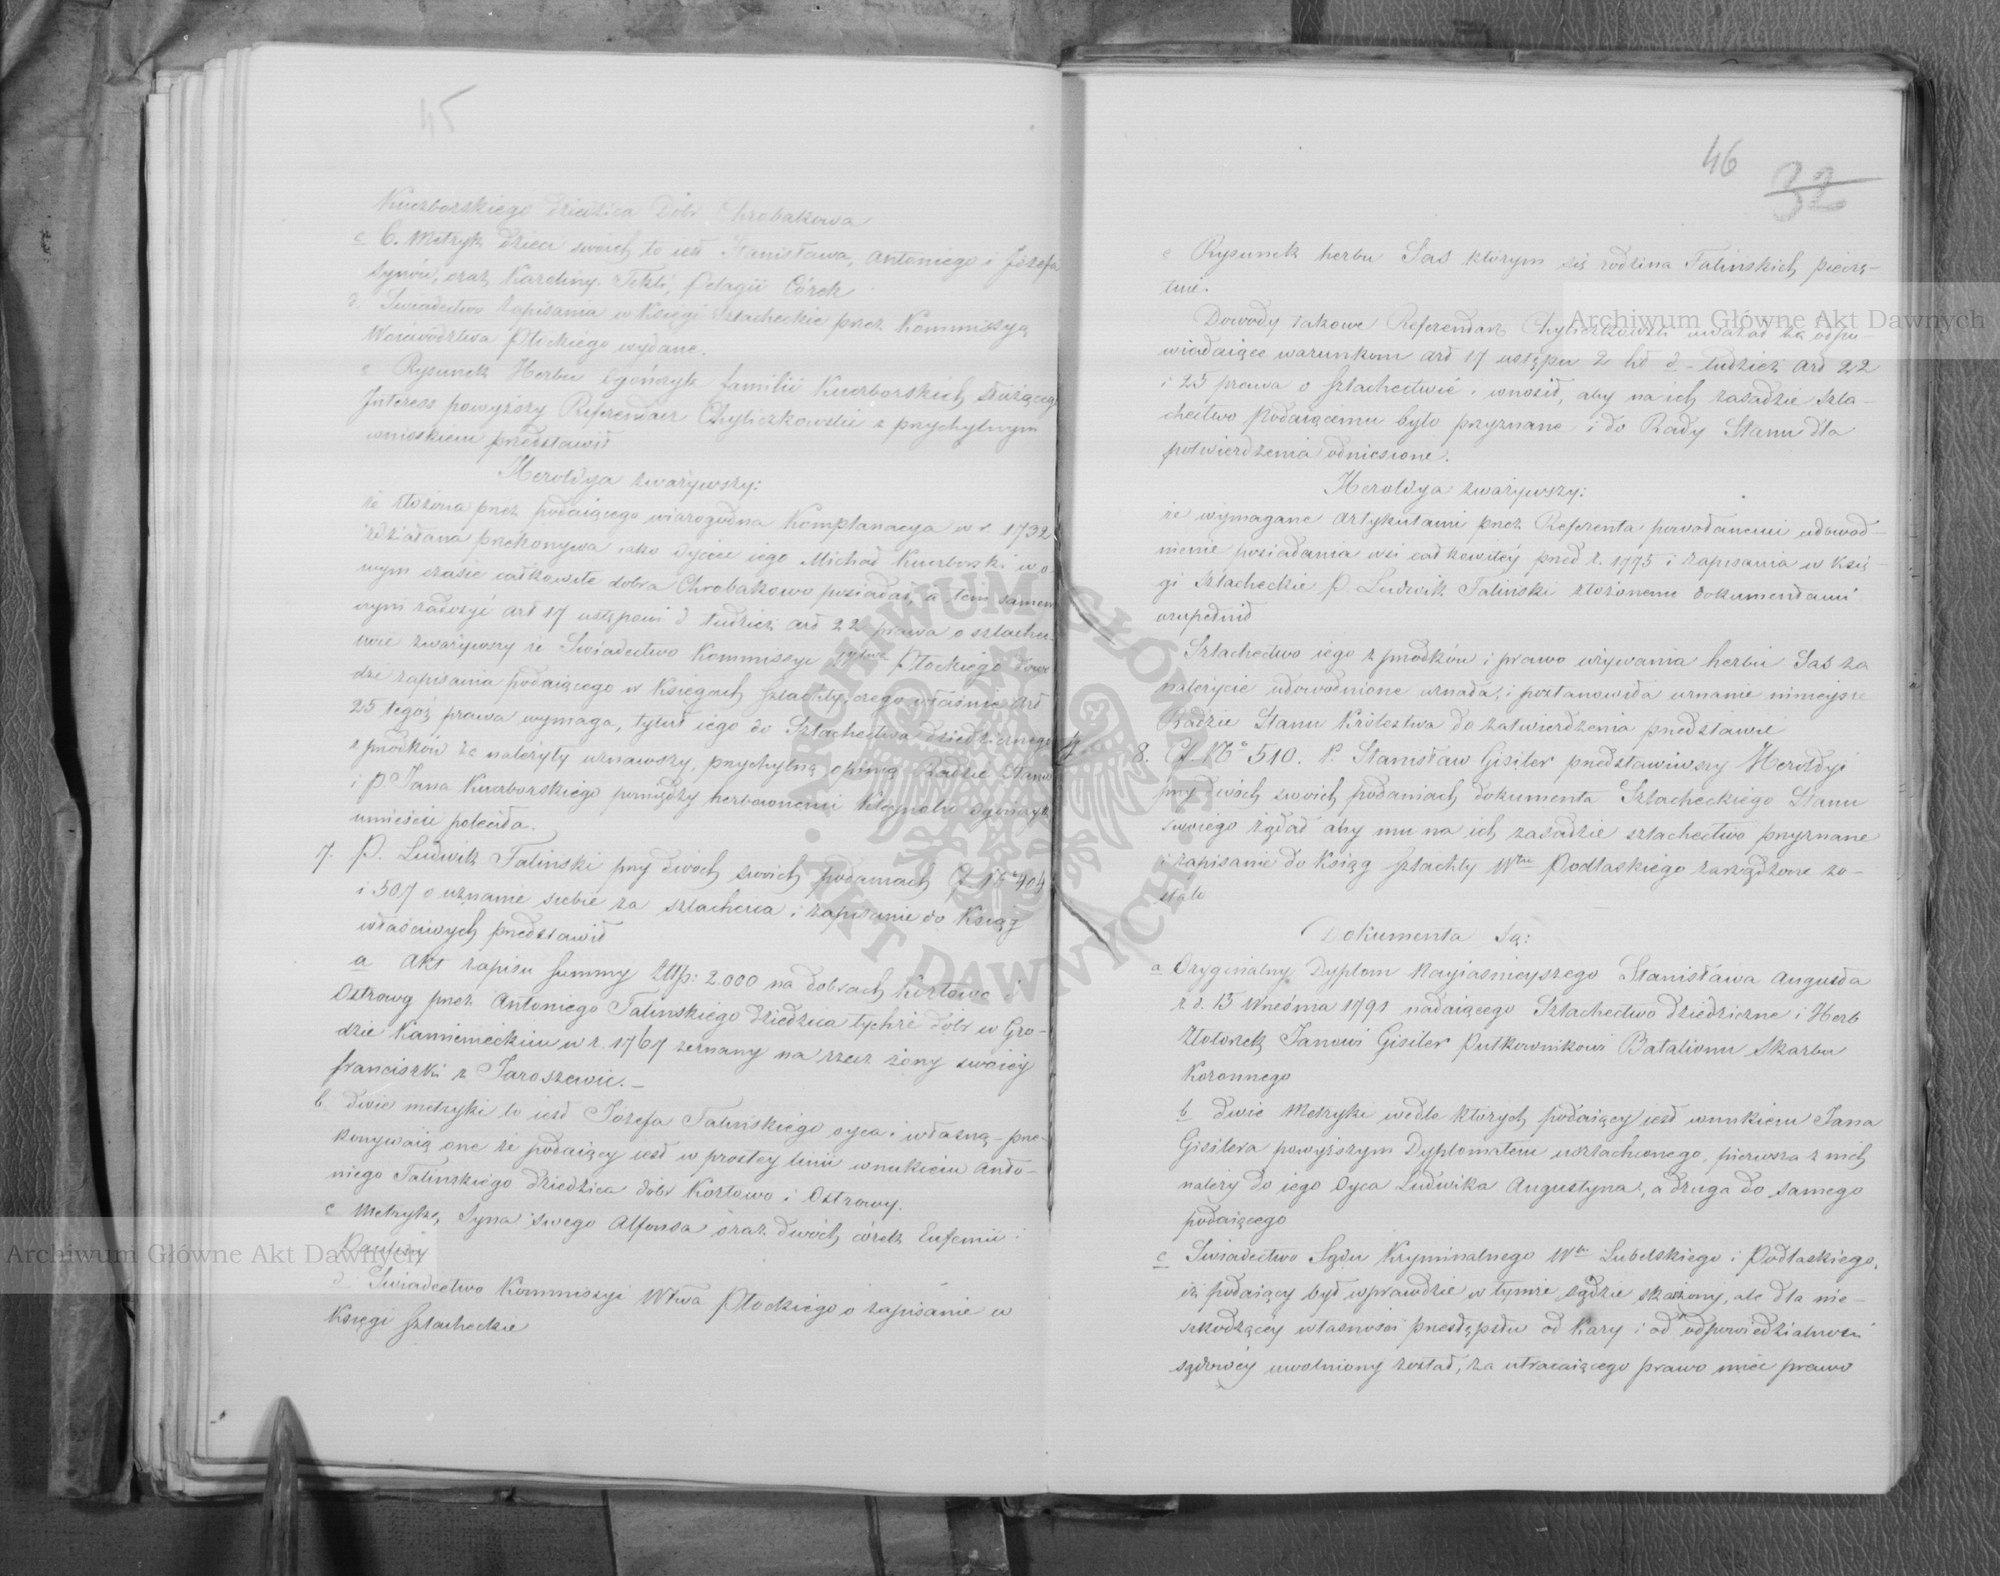 45
Kuczborskiego dziedzica Dóbr Chrobakowa.
c 6. Metryk dzieci swoich to iest Stanisława, Antoniego i Józefa
synów, oraz Karoliny, Tekli, Pelagii Córek
d. Swiadectwo zapisania w Księgi Szlacheckie przez Kommissyą
Woiewództwa Płockiego wydane.
e Rysunek Herbu Ogończyk familii Kuczborskich służącego
Interess powyższy Referendarz Chyliczkowski z przychylnym
wnioskiem przedstawił
Heroldya zważywszy:
że złożona przez podaiącego wiarogodna Komplanacya w r. 1732
zdziałana przekonywa iako Oyciec iego Michał Kuczborski w o-
wym czasie całkowite dobra Chrobakowo posiadał, a tem samem
czyni zadosyć art 17 ustępowi d tudzież art 22 prawa o szlachec-
twie zważywszy że Swiadectwo Kommissyi Wdztwa Płockiego dowo-
dzi zapisania podaiącego w Księgach szlachty, czego właśnie Art
25 tegoż prawa wymaga, tytuł iego do Szlachectwa dziedzicznego
z przodków za należyty uznawszy, przychylną opinią Radzie Stanu
i P. Jana Kuczborskiego pomiędzy herbownemi Kleynotu Ogończyk
umieścić poleciła.
7. P. Ludwik Taliński przy dwóch swoich podaniach Cl. No 404
i 507 o uznanie siebie za szlachcica i zapisanie do Ksiąg
właściwych przedstawił
a Akt zapisu summy Złtp: 2.000 na dobrach Kozłowo i
Ostrowy przez Antoniego Talinskiego dziedzica tychże dóbr w Gro-
dzie Kamienieckim w r. 1767 zeznany na rzecz żony swoiéy
franciszki z Jaroszewic. –
b dwie metryki to iest Józefa Talińskiego oyca i własną – prze-
konywaią one że podaiący iest w prostey linii wnukiem Anto-
niego Talinskiego dziedzica dóbr Kozłowo i Ostrowy.
c Metrykę, Syna swego Alfonsa oraz dwóch córek Eufemii i
Pauliny
d Swiadectwo Kommissyi Wtwa Płockiego o zapisanie w
Księgi szlacheckie
46
32
e Rysunek herbu Sas którym się rodzina Talińskich pieczę-
tuie.
Dowody takowe Referendarz Chyliczkowski uważał za odpo-
wiadaiące warunkom art 17 ustępu 2 lit d – tudzież art 22
i 25 prawa o szlachectwie i wnosił, aby na ich zasadzie Szla-
chectwo Podaiącemu było przyznane i do Rady Stanu dla
potwierdzenia odniesione.
Heroldya zważywszy:
że wymagane artykułami przez Referenta powołanemi udowod-
nienie posiadania wsi całkowitéy przed r. 1775 i zapisania w Księ-
gi szlacheckie P. Ludwik Taliński złożonemi dokumentami
uzupełnił
Szlachectwo iego z przodków i prawo używania herbu Sas za
należycie udowodnione uznała, i postanowiła uznanie ninieysze
Radzie Stanu Królestwa do zatwierdzenia przedstawić
8. Cl. No 510. P. Stanisław Gisiler przedstawiwszy Heroldyi
przy dwóch swoich podaniach dokumenta Szlacheckiego Stanu
swoiego żądał aby mu na ich zasadzie szlachectwo przyznane
i zapisanie do Ksiąg szlachty Wtwa Podlaskiego zarządzone zo-
stało
Dokumenta Są:
a Oryginalny Dyplom Nayiaśnieyszego Stanisława Augusta
z d. 15 Wrześnía 1791 nadaiącego Szlachectwo dziedziczne i Herb
Złotorek Janowi Gisiler Pułkownikowi Batalionu Skarbu
Koronnego
b dwie Metryki wedle których podaiący iest wnukiem Jana
Gisilera powyższym Dyplomatem uszlachconego, pierwsza z nich
należy do iego Oyca Ludwika Augustyna, a druga do samego
podaiącego
c Swiadectwo Sądu Kryminalnego Wtw Lubelskiego i Podlaskiego,
iż podaiący był wprawdzie w tymże sądzie skarżony, ale dla nie-
szkodzącéy własności przestępstw od kary i od odpowiedzialności
sądowéy uwolniony został, za utracaiącego prawo mieć prawo
Archiwum Główne Akt Dawnych
Archiwum Główne Akt Dawnych
ARCHIWUM GŁÓWNE AKT DAWNYCH